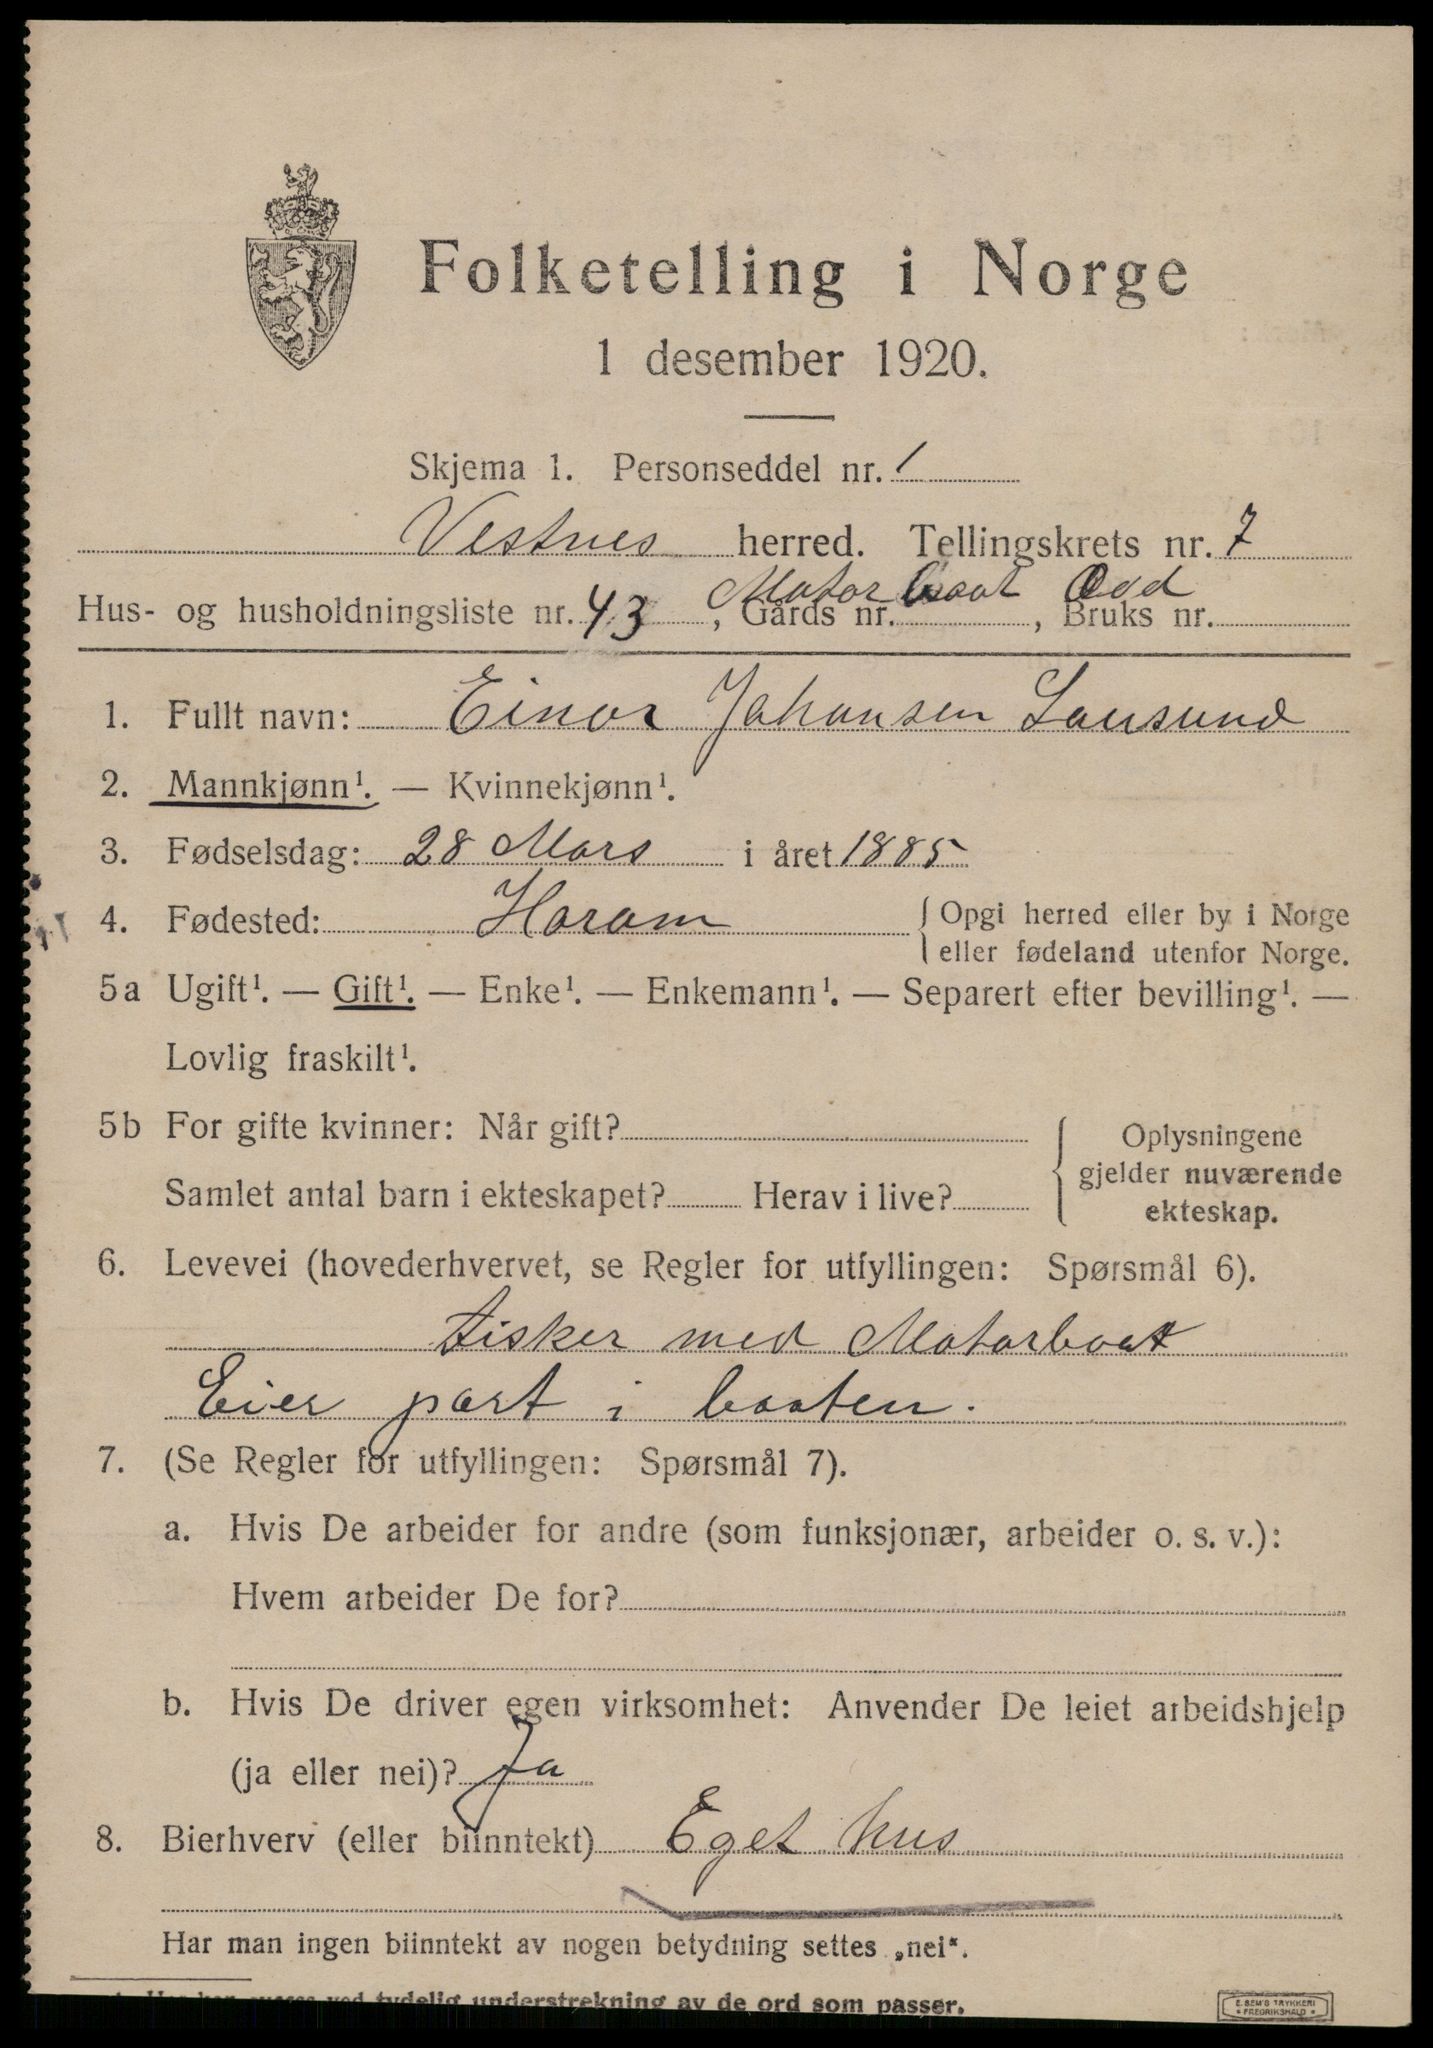 Folketelling i Norge
1 desember 1920.
Skjema 1. Personseddel nr. 1
Vestnes herred. Tellingskrets nr. 7
Motorbaat Odd
Hus- og husholdningsliste nr. 43, Gårds nr. , Bruks nr.
1. Fullt navn: Einar Johansen Longsund
2. Mannkjønn¹. — Kvinnekjønn¹.
3. Fødselsdag: 28 Mars i året 1885
4. Fødested: Haram { Opgi herred eller by i Norge
eller fødeland utenfor Norge.
5a Ugift¹. — Gift¹. — Enke¹. — Enkemann¹. — Separert efter bevilling¹. —
Lovlig fraskilt¹.
5b For gifte kvinner: Når gift?
Samlet antal barn i ekteskapet? Herav i live?
{ Oplysningene
gjelder nuværende
ekteskap.
6. Levevei (hovederhvervet, se Regler for utfyllingen: Spørsmål 6).
Fisker med Motorbaat
Eier part i baaten.
7. (Se Regler for utfyllingen: Spørsmål 7).
a. Hvis De arbeider for andre (som funksjonær, arbeider o. s. v.):
Hvem arbeider De for?
b. Hvis De driver egen virksomhet: Anvender De leiet arbeidshjelp
(ja eller nei)? Ja
8. Bierhverv (eller biinntekt) Eget hus
Har man ingen biinntekt av nogen betydning settes „nei“.
ved tydelig understrekning av de ord som passer.
E. SEM'S TRYKKERI
* FREDRIKSHALD *